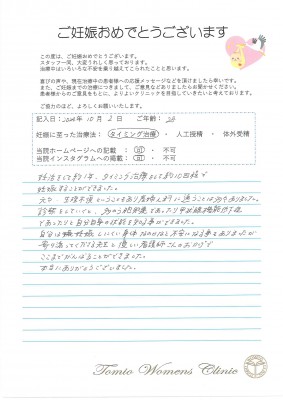 ご妊娠おめでとうございます
この度は、ご妊娠おめでとうございます。
スタッフ一同、大変うれしく思っております。
治療中はいろいろな不安を乗り越えてこられたことと思います。
喜びの声や、現在治療中の患者様への応援メッセージなどを頂けましたら幸いです。
また、ご妊娠までの治療につきまして、ご意見などありましたらお聞かせください。
患者様からのご意見をもとに、よりよいクリニックを目指していきたいと考えております。
ご協力のほど、よろしくお願いいたします。
記入日: 年 10月 2日 ご年齢:
妊娠に至った治療法: タイミング治療 ・ 人工授精 ・ 体外受精
当院ホームページへの記載 : 可 ・ 不可
当院インスタグラムへの掲載 : 可 ・ 不可
妊活をして約1年、タイミング治療をして約10回程で
妊娠することができました。
元々、生理不順ということもあり
診察をしていく
であったりと自分自身の体質を知る事ができました。
自分は妊娠しにくい事に不安になる事もありましたが
寄り添ってくれる先生と優しい看護師さんのおかげで
ここまでがんばることができました。
本当にありがとうございました。
Tomio Womens Clinic